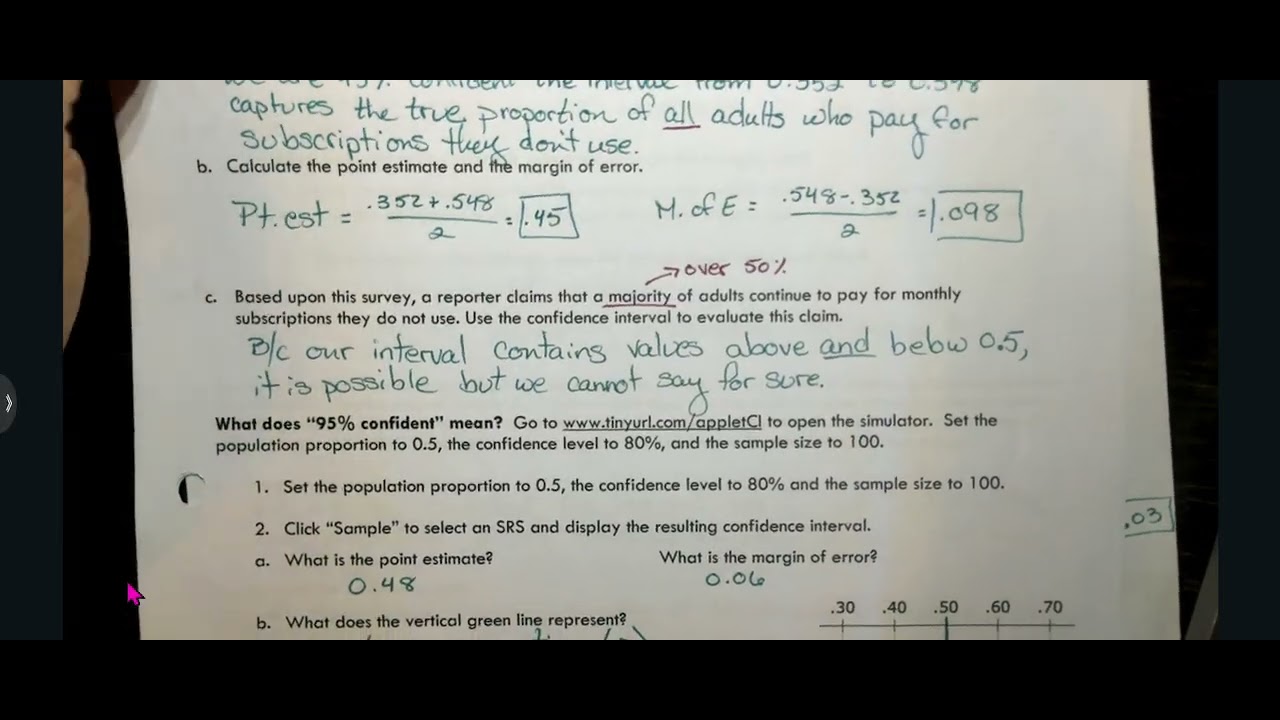 we are 95% confident the interval from 0.352 to 0.548
captures the true proportion of all adults who pay for
subscriptions they don't use.
b. Calculate the point estimate and the margin of error.
Pt. est = .352 + .548 / 2 = .45 M. of E = .548 - .352 / 2 = .098
→ over 50%
c. Based upon this survey, a reporter claims that a majority of adults continue to pay for monthly
subscriptions they do not use. Use the confidence interval to evaluate this claim.
B/c our interval contains values above and below 0.5,
it is possible but we cannot say for sure.
What does "95% confident" mean? Go to www.tinyurl.com/appletCI to open the simulator. Set the
population proportion to 0.5, the confidence level to 80%, and the sample size to 100.
1. Set the population proportion to 0.5, the confidence level to 80% and the sample size to 100.
.03
2. Click "Sample" to select an SRS and display the resulting confidence interval.
a. What is the point estimate? What is the margin of error?
0.48 0.06
.30 .40 .50 .60 .70
b. What does the vertical green line represent?